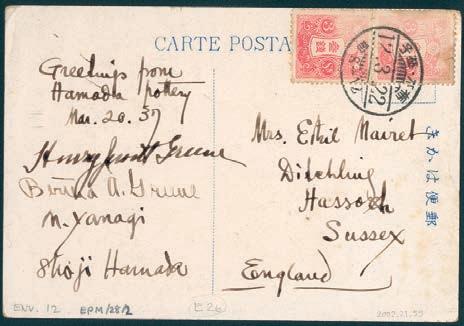 CARTE POSTA
Greetings from
Hamada pottery
Mar. 20. 37
Bertha A. Greene
N. Yanagi
Shoji Hamada
12.3.22
Mrs. Ethel Mairet
Ditchling
Hassock
Sussex
England
きかは便郵
ENV. 12
EPM/28/2
(E26)
2002.21.55